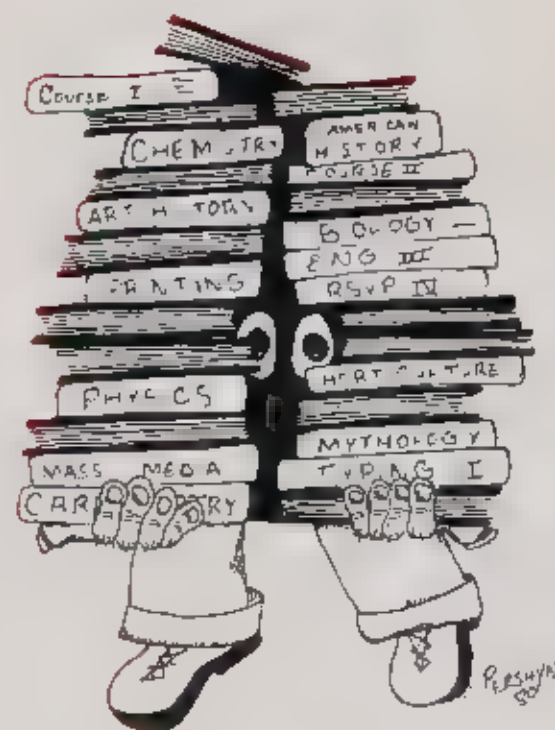 Course I
CHEMISTRY
ART HISTORY
PRINTING
PHYSICS
MASS MEDIA
CARPENTRY
AMERICAN
HISTORY
COURSE II
BIOLOGY
ENG III
RSVP IV
HORTICULTURE
MYTHOLOGY
TYPING I
80